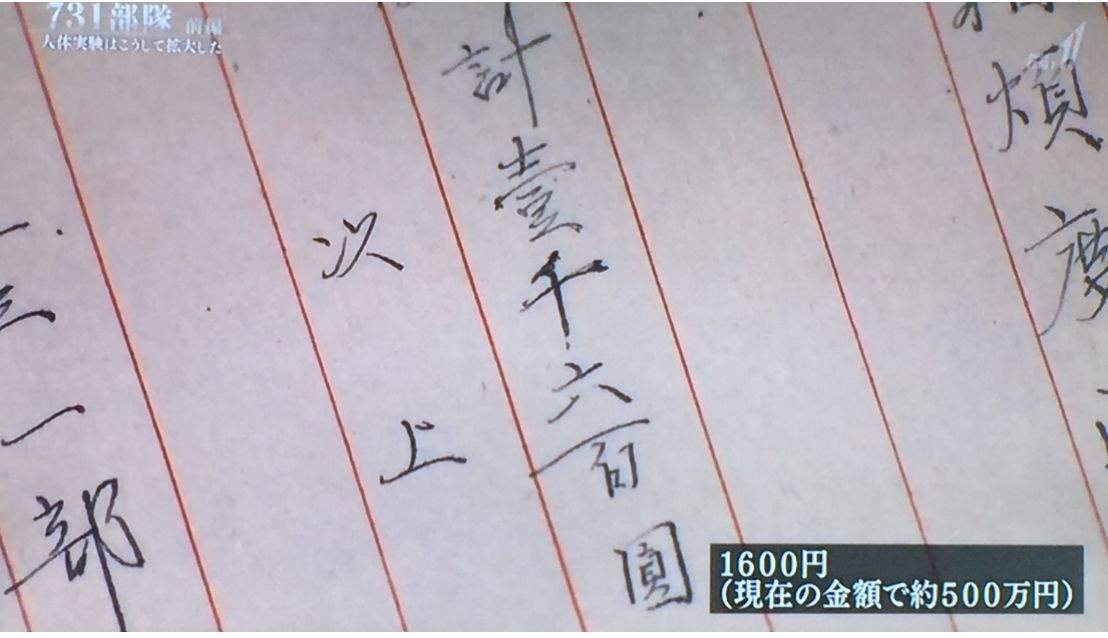 731部隊 前編
人体実験はこうして拡大した
煩
計壹千六百圓
以上
三一部
1600円
(現在の金額で約500万円)